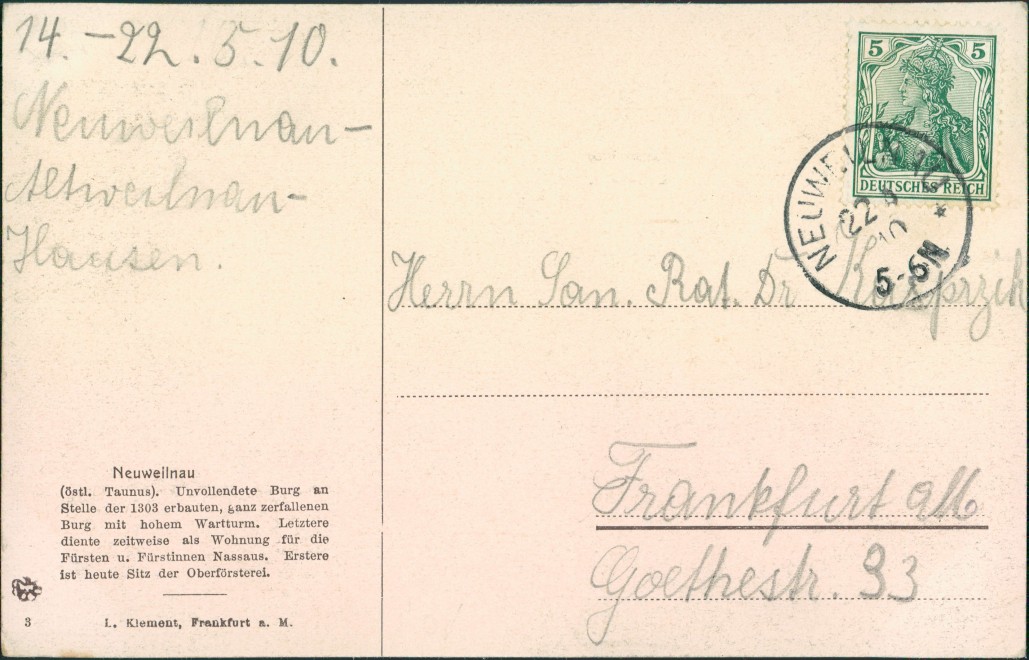 14.-22.5.10.
Neuweilnau-
Altweilnau-
Hausen.
5 5
DEUTSCHES REICH
NEUWEILNAU *
22 5
10
5-6N
Herrn San. Rat. Dr
Frankfurt a/M
Goethestr. 33
Neuweilnau
(östl. Taunus). Unvollendete Burg an
Stelle der 1303 erbauten, ganz zerfallenen
Burg mit hohem Wartturm. Letztere
diente zeitweise als Wohnung für die
Fürsten u. Fürstinnen Nassaus. Erstere
ist heute Sitz der Oberförsterei.
3 L. Klement, Frankfurt a. M.